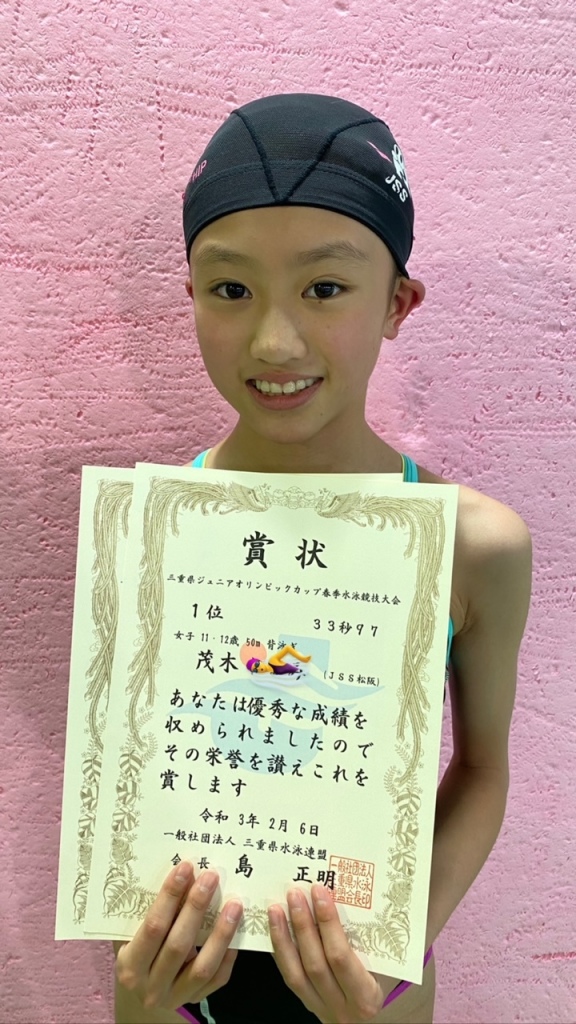 HIP
JSS
賞状
三重県ジュニアオリンピックカップ春季水泳競技大会
1位 33秒97
女子 11・12歳 50m 背泳
茂木
(JSS松阪)
あなたは優秀な成績を
収められましたので
その栄誉を讃えこれを
賞します
令和 3年 2月 6日
一般社団法人 三重県水泳連盟
会長 島 正明
一般社団法人
三重県水泳
連盟会長印